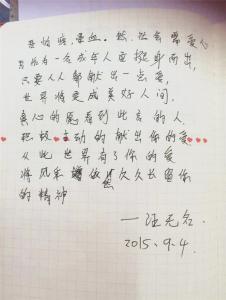 我怕疼,晕血。然,社会需爱心
身为一个成年人应挺身而出,
只要人人都献出一点爱,
世界将变成美好人间,
真心的愿看到此言的人
积极主动的献出你的爱
从此世界有了你的爱
将风采 久久长留你
的精神
一汪无名.
2015.9.4.